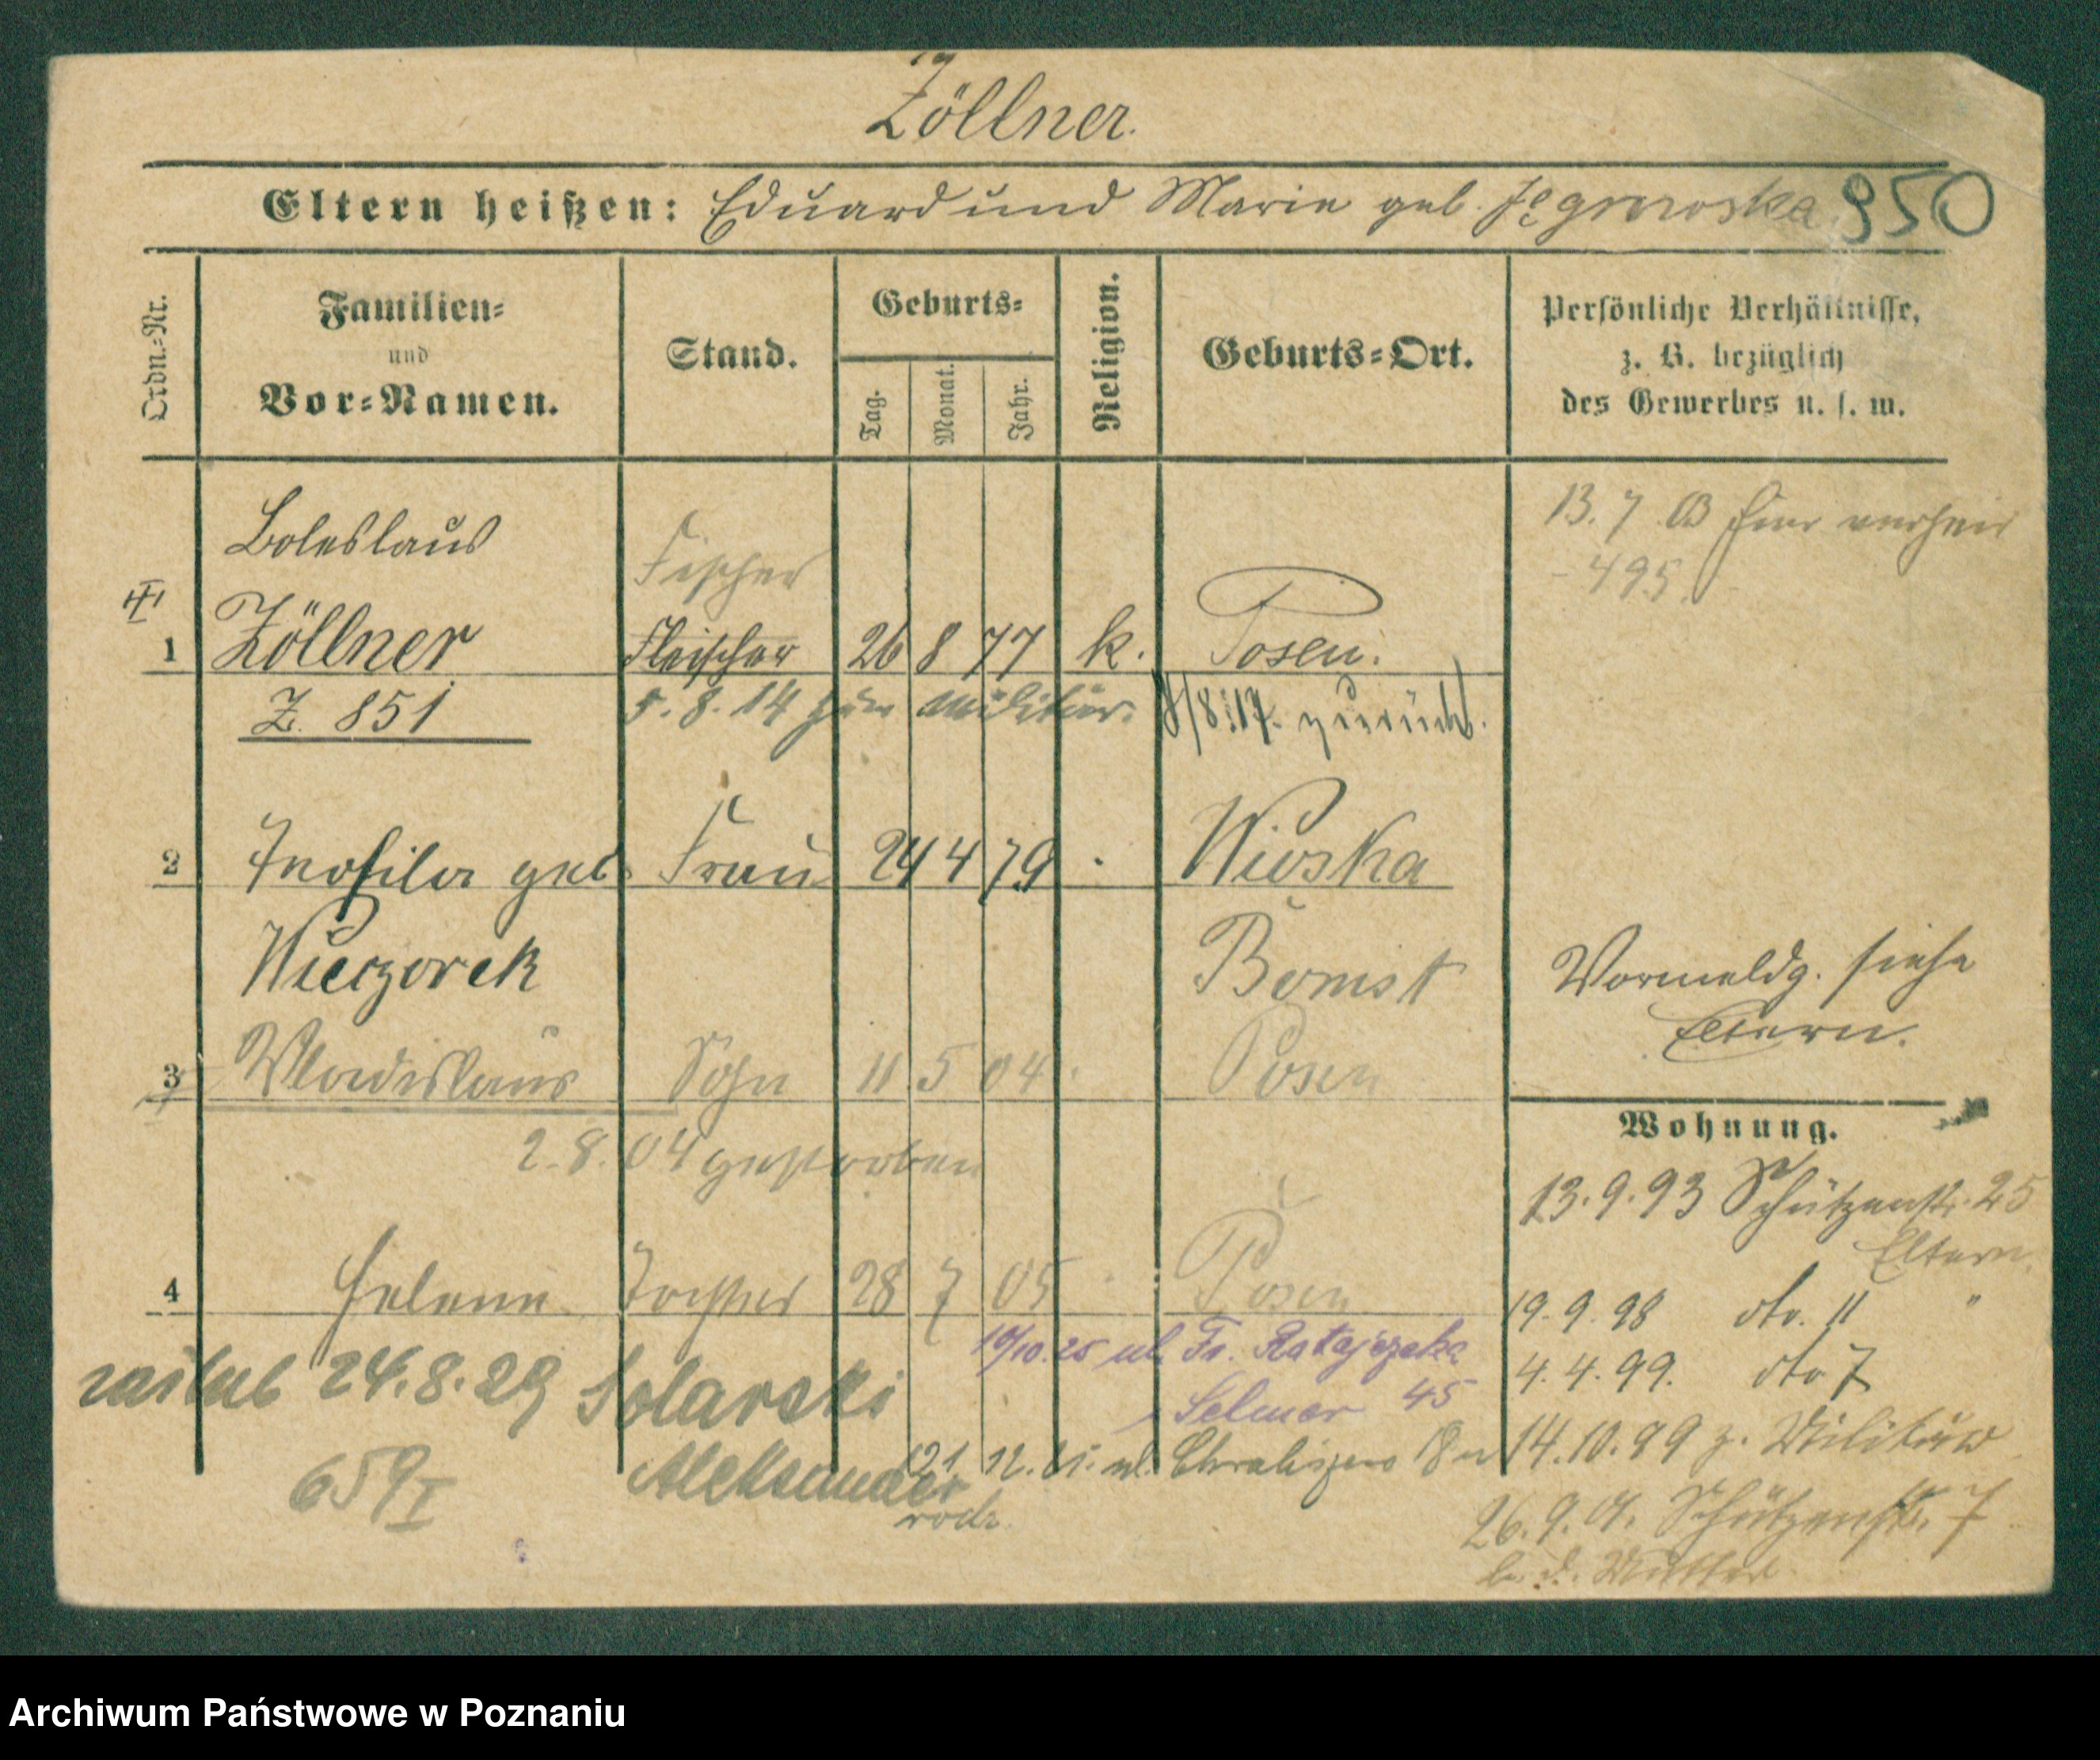 Zöllner.
Eltern heißen: Eduard und Marie geb.
950
Ordn.-Nr.
Familien- und Vor-Namen.
Stand.
Geburts-
Tag. Monat. Jahr.
Religion.
Geburts-Ort.
Persönliche Verhältnisse,
z. B. bezüglich
des Gewerbes u. s. w.
Boleslaus
Fischer
1 Zöllner Fleischer 26 8 77 k. Posen.
Z. 851 5.8.14 zum Militär. /8.17. zurück.
13.7.03 hier verheir
- 495.
2 Teofila geb. Frau 24 4 79 Wioska
Wieczorek Bomst
3 Wladislaus Sohn 11 5 04 Posen
2.8.04 gestorben
Vormeldg. siehe
Eltern.
4 Helene Tochter 28 7 05 Posen
10/10.25 ul. Fr. Ratajczaka
45
zaślub 24.8.29 Solarski
Aleksander
21 12. ul. 18
rodz.
659 I
Wohnung.
13.9.93 Schützenstr. 25
Eltern.
19.9.98 dto. 11 "
4.4.99. dto 7
14.10.99 z. Militär
26.9.01. Schützenstr. 7
b. d. Mutter
Archiwum Państwowe w Poznaniu